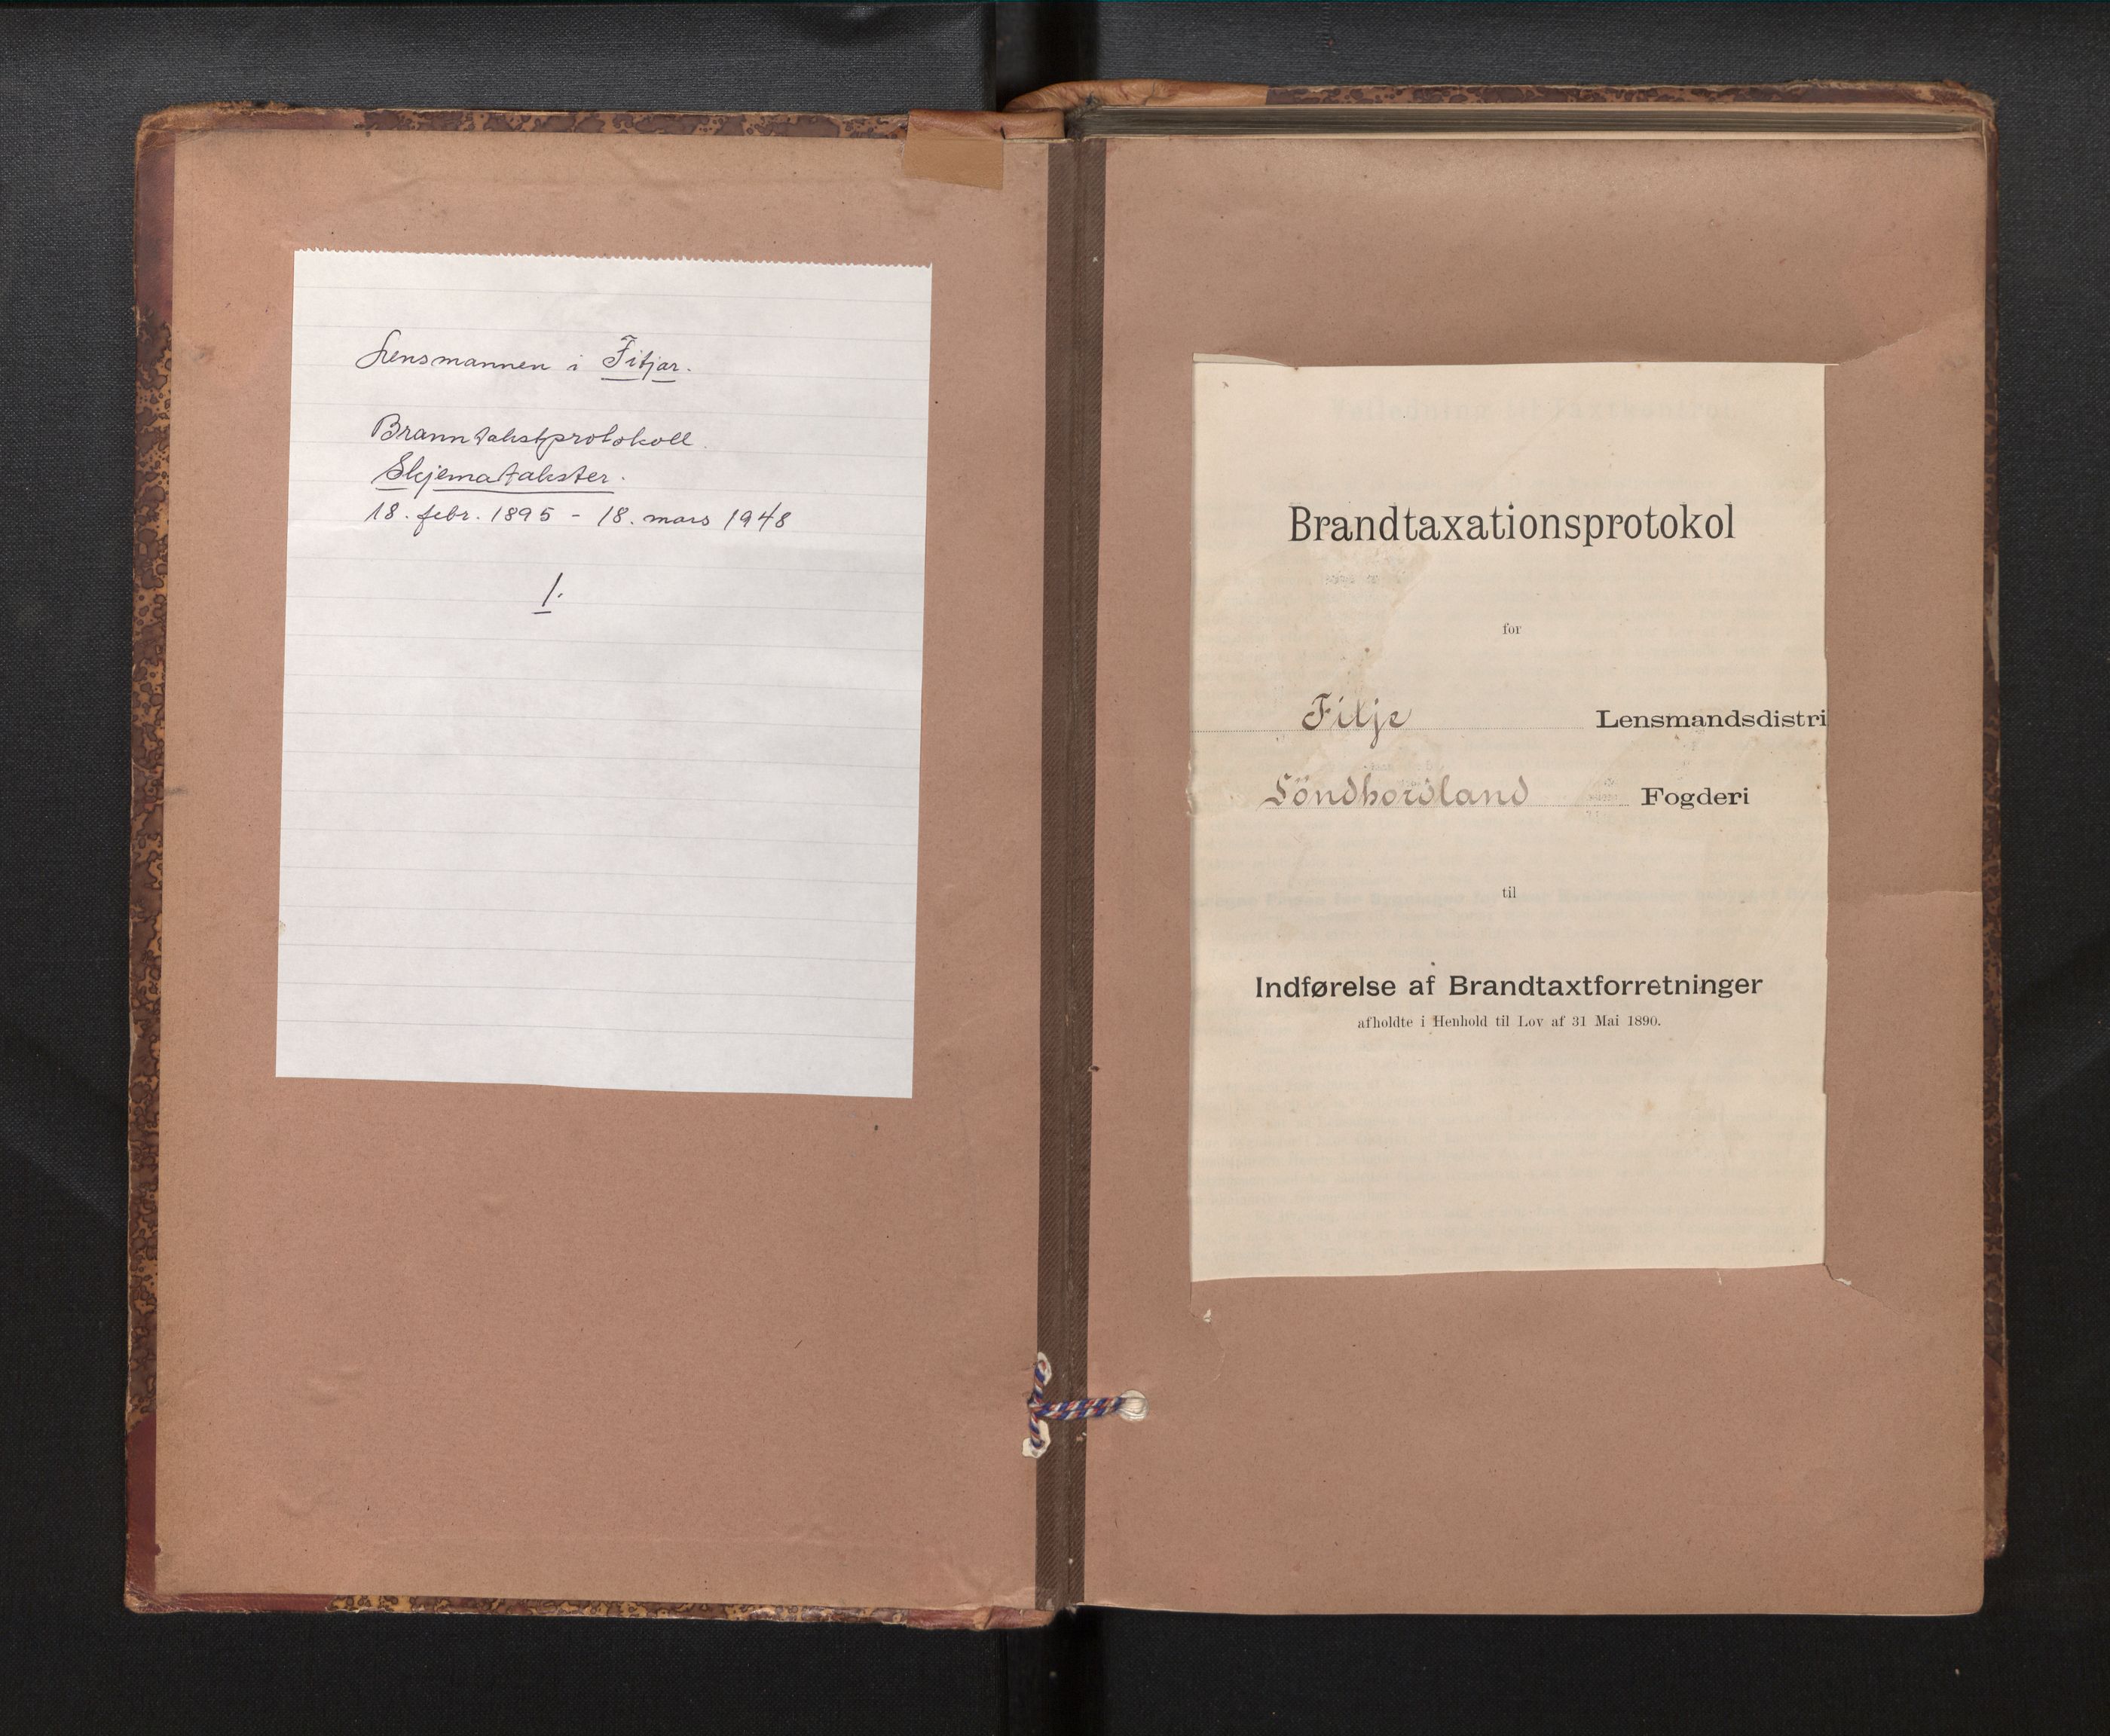 Lensmannen i Fitjar.
Branntakstprotokoll.
Skjematakster.
18. febr. 1895 - 18. mars 1948
1.
Brandtaxationsprotokol
for
Fitje Lensmandsdistri
Söndhordland Fogderi
til
Indførelse af Brandtaxtforretninger
afholdte i Henhold til Lov af 31 Mai 1890.